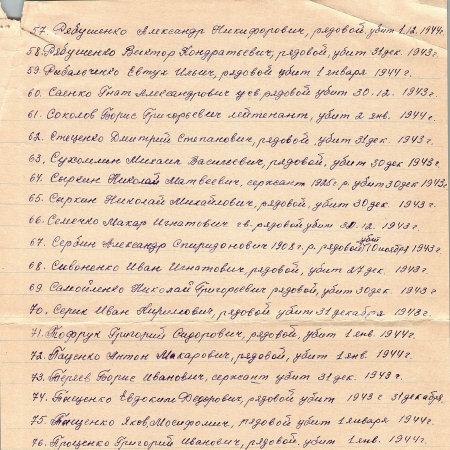 57. Рябушенко Александр Никифорович, рядовой, убит 1.12.1944г
58. Рябушенко Виктор Кондратьевич, рядовой, убит 31 дек. 1943г.
59. Рибальченко Евтух Ильич, рядовой убит 1 января 1944г.
60. Саенко Гнат Александрович гв рядовой убит 30.12. 1943г.
61. Соколов Борис Григорьевич лейтенант, убит 2 янв. 1944г.
62. Стеценко Дмитрий Степанович, рядовой, убит 31 дек. 1943г.
63. Сухомлин Михаил Василевич, рядовой, убит 30 дек 1943г.
64. Сыркин Николай Матвеевич, сержант 1925 г.р. убит 30 дек 1943г.
65. Сыркин Николай Михайлович, рядовой, убит 30 дек. 1943г.
66. Семечко Макар Игнатович гв. рядовой убит 30.12. 1943г.
67. Сербин Александр Спиридонович 1908 г.р. рядовой убит 10 ноября 1943г.
68. Сивоненко Иван Игнатович, рядовой, убит 27 дек. 1943г.
69. Самойленко Николай Григореевич рядовой, убит 30 дек. 1943г
70. Серик Иван Кириллович, рядовой убит 31 декабря 1943г.
71. Тофрук Григорий Сидорович, рядовой, убит 1 янв. 1944г.
72. Таценко Антон Макарович, рядовой, убит 1 янв. 1944г.
73. Теряев Борис Иванович, сержсант убит 31 дек. 1943г.
74. Тыщенко Евдоким Федорович, рядовой убит 1943г 31 декабря
75. Тыщенко Яков Иосифович, рядовой убит 1 января 1944г.
76. Троценко Григорий Иванович, рядовой. убит 1 янв. 1944г.